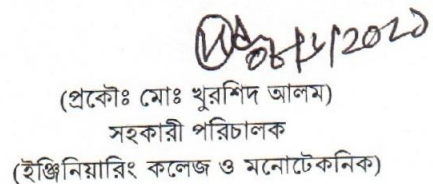 (প্রকৌঃ মোঃ খুরশিদ আলম)
সহকারী পরিচালক
(ইঞ্জিনিয়ারিং কলেজ ও মনোটেকনিক)